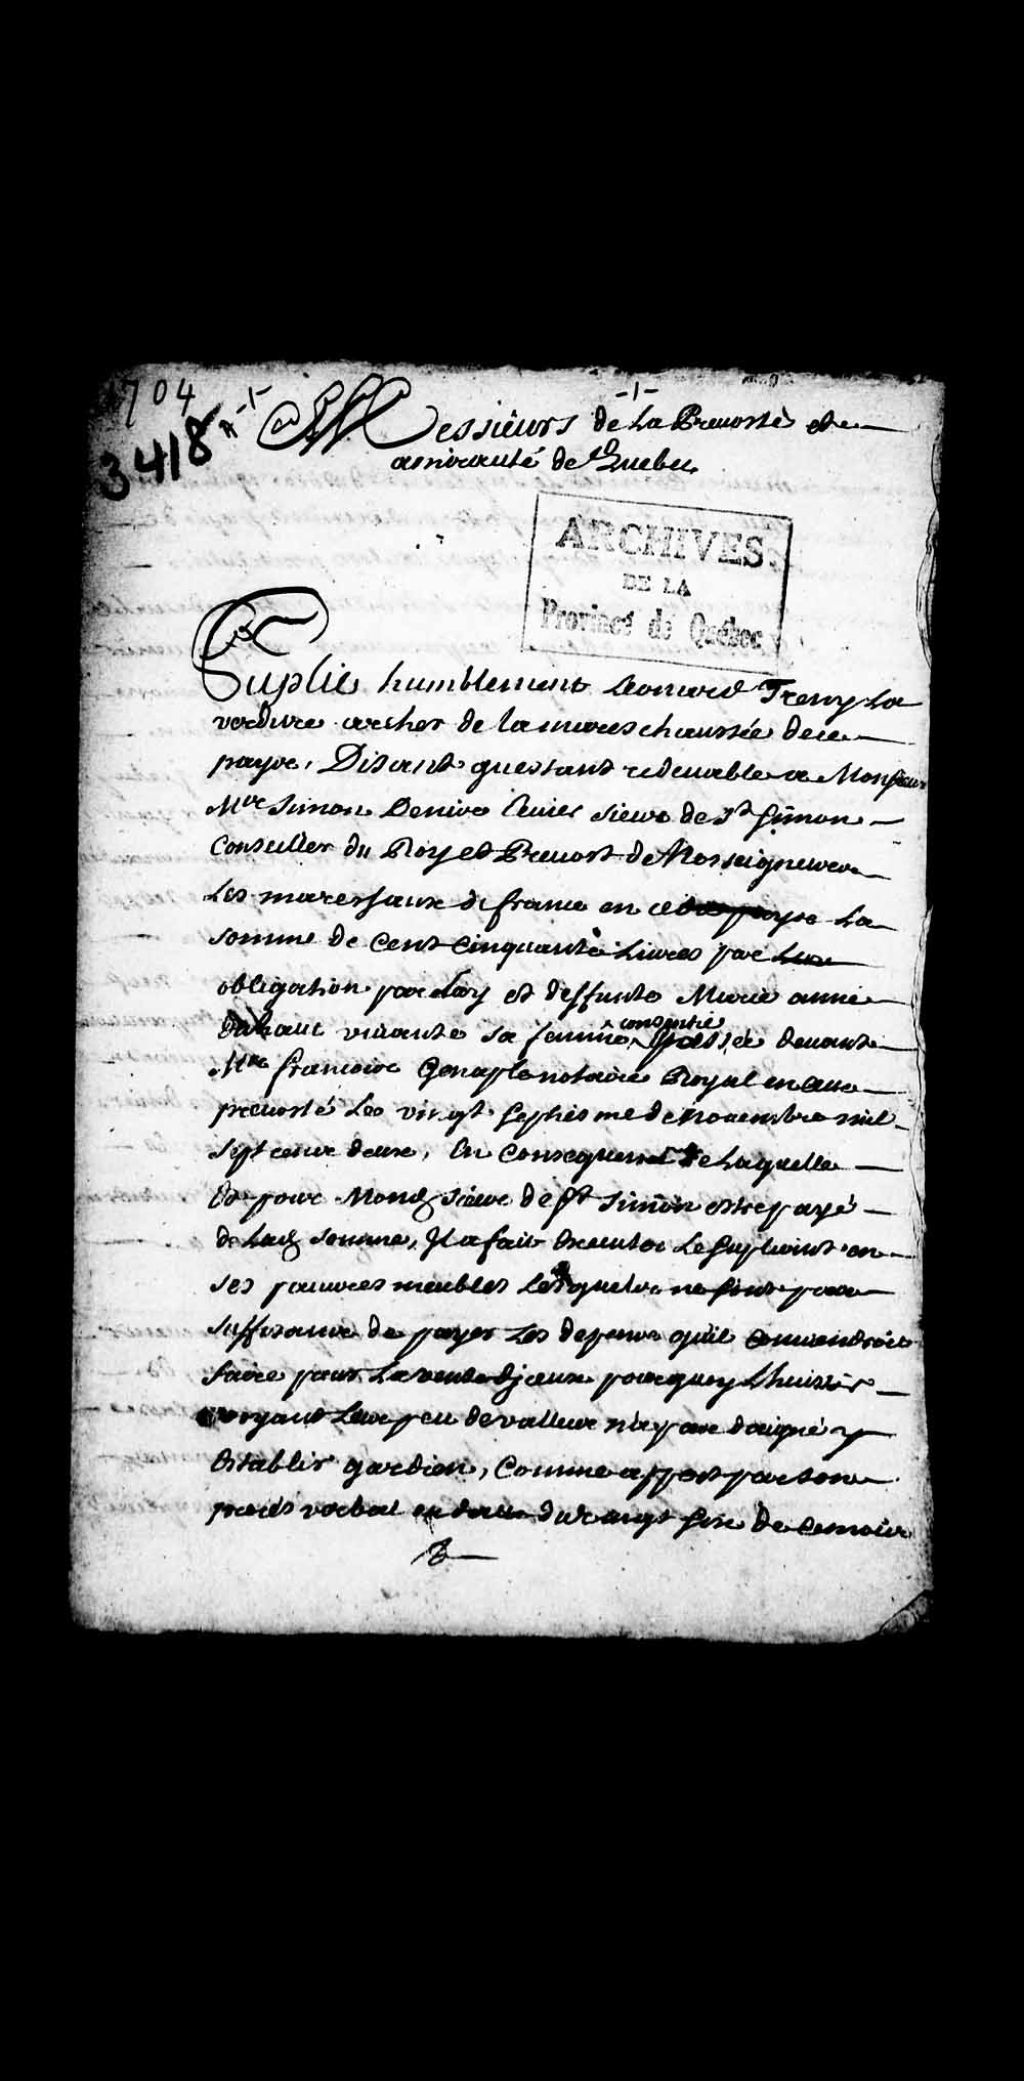 1704
3418
-1-
-1-
Messieurs de La Prevosté et
amirauté de Quebec
ARCHIVES
DE LA
Province de Québec
Suplie humblement Leonard Treny La
verdure archer de la mareschaussée de ce
pays, Disant questant redevable a Monsieur
Mre Simon Denis sieur de St Simon
Conseiller du Roy et Prevost de Nosseigneurs
Les mareschaux de france en ce pays La
somme de Cent Cinquante Livres par
obligation par Luy et deffunte Marie anne
vivante sa femme consentie passée devant
Mre francois Genaple notaire Royal en cette
prevosté Le vingt septiesme de Novembre mil
sept cens deux, En Consequence de Laquelle
Et pour Mond sieur de St Simon estre payé
de Lad somme, Il a fait Executer Le supliant en
ses pauvres meubles Lesquels ne sont pas
suffisans de payer Les depens quil Conviendroit
faire pour La vente diceux pourquoy Lhuissier
voyant Leur peu de valleur na pas daigné y
Establir gardien, Comme apert par son
procés verbal en datte du vingt six de ce mois